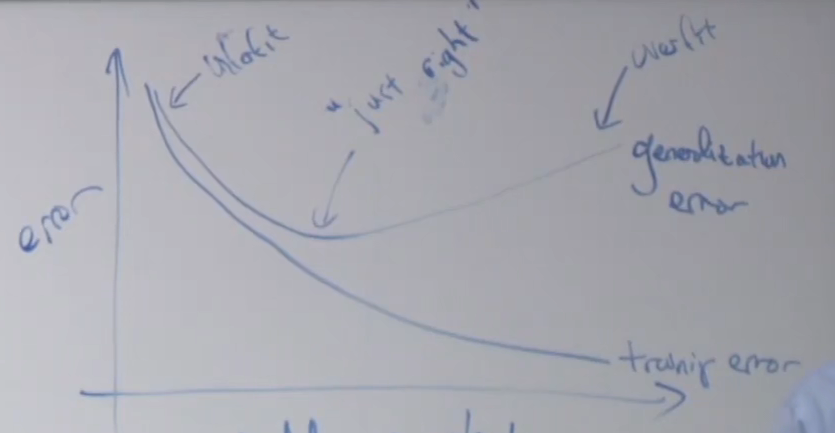 underfit
"just right"
overfit
error
generalization
error
training error